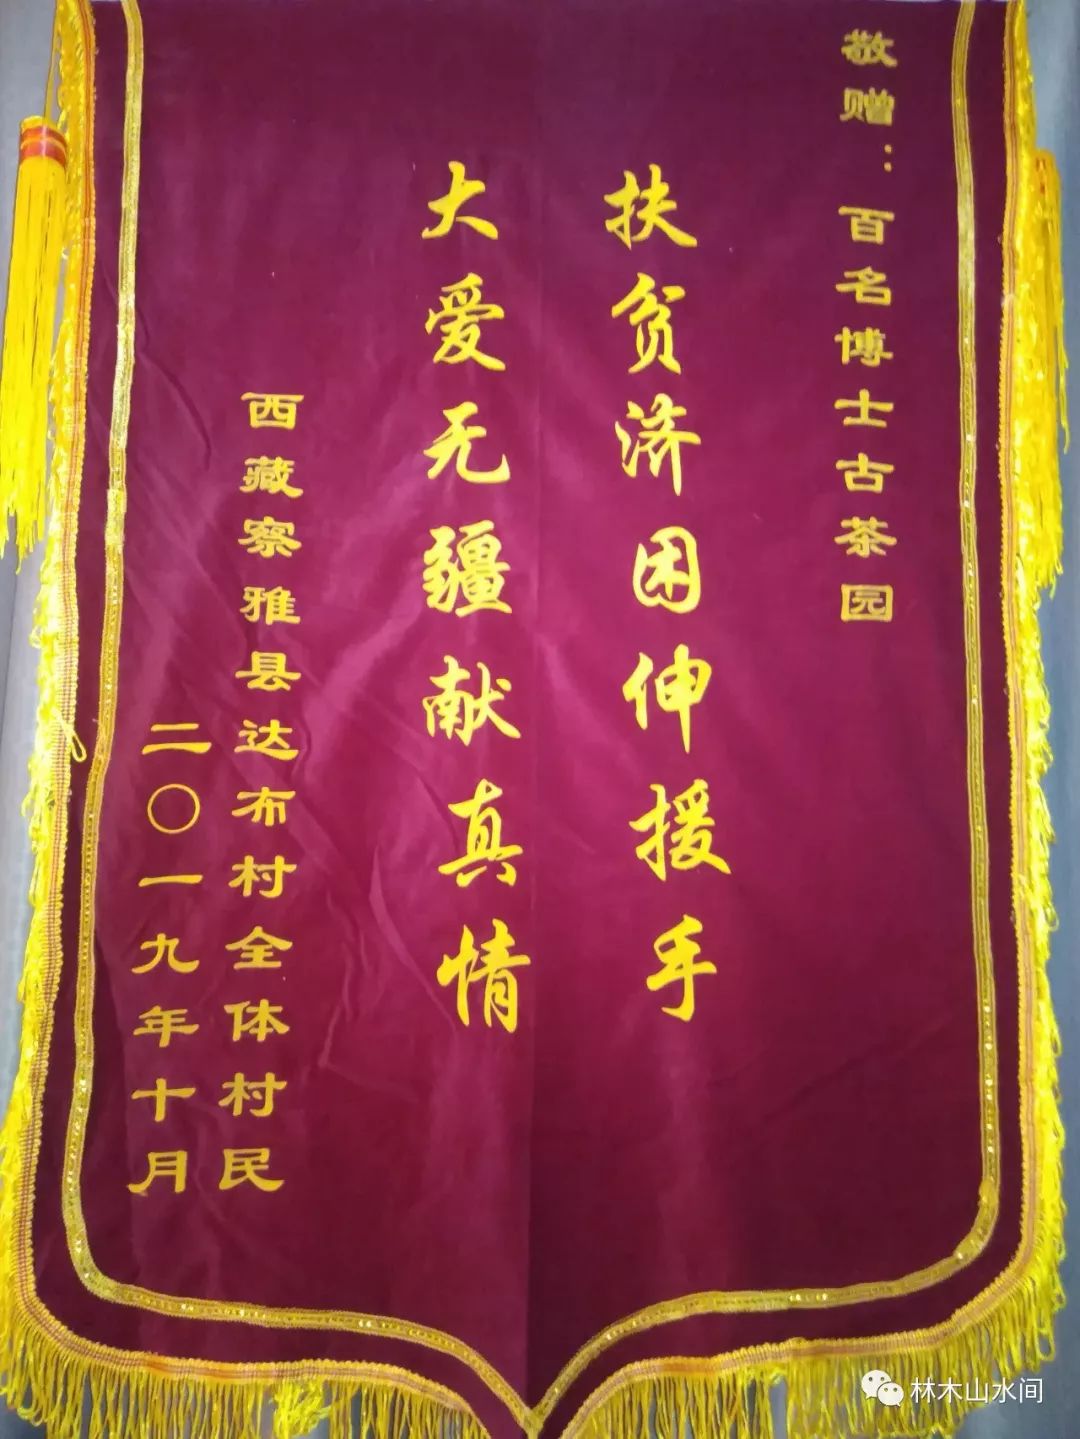 敬赠：百名博士古茶园
扶贫济困伸援手
大爱无疆献真情
西藏察雅县达布村全体村民
二〇一九年十月
林木山水间